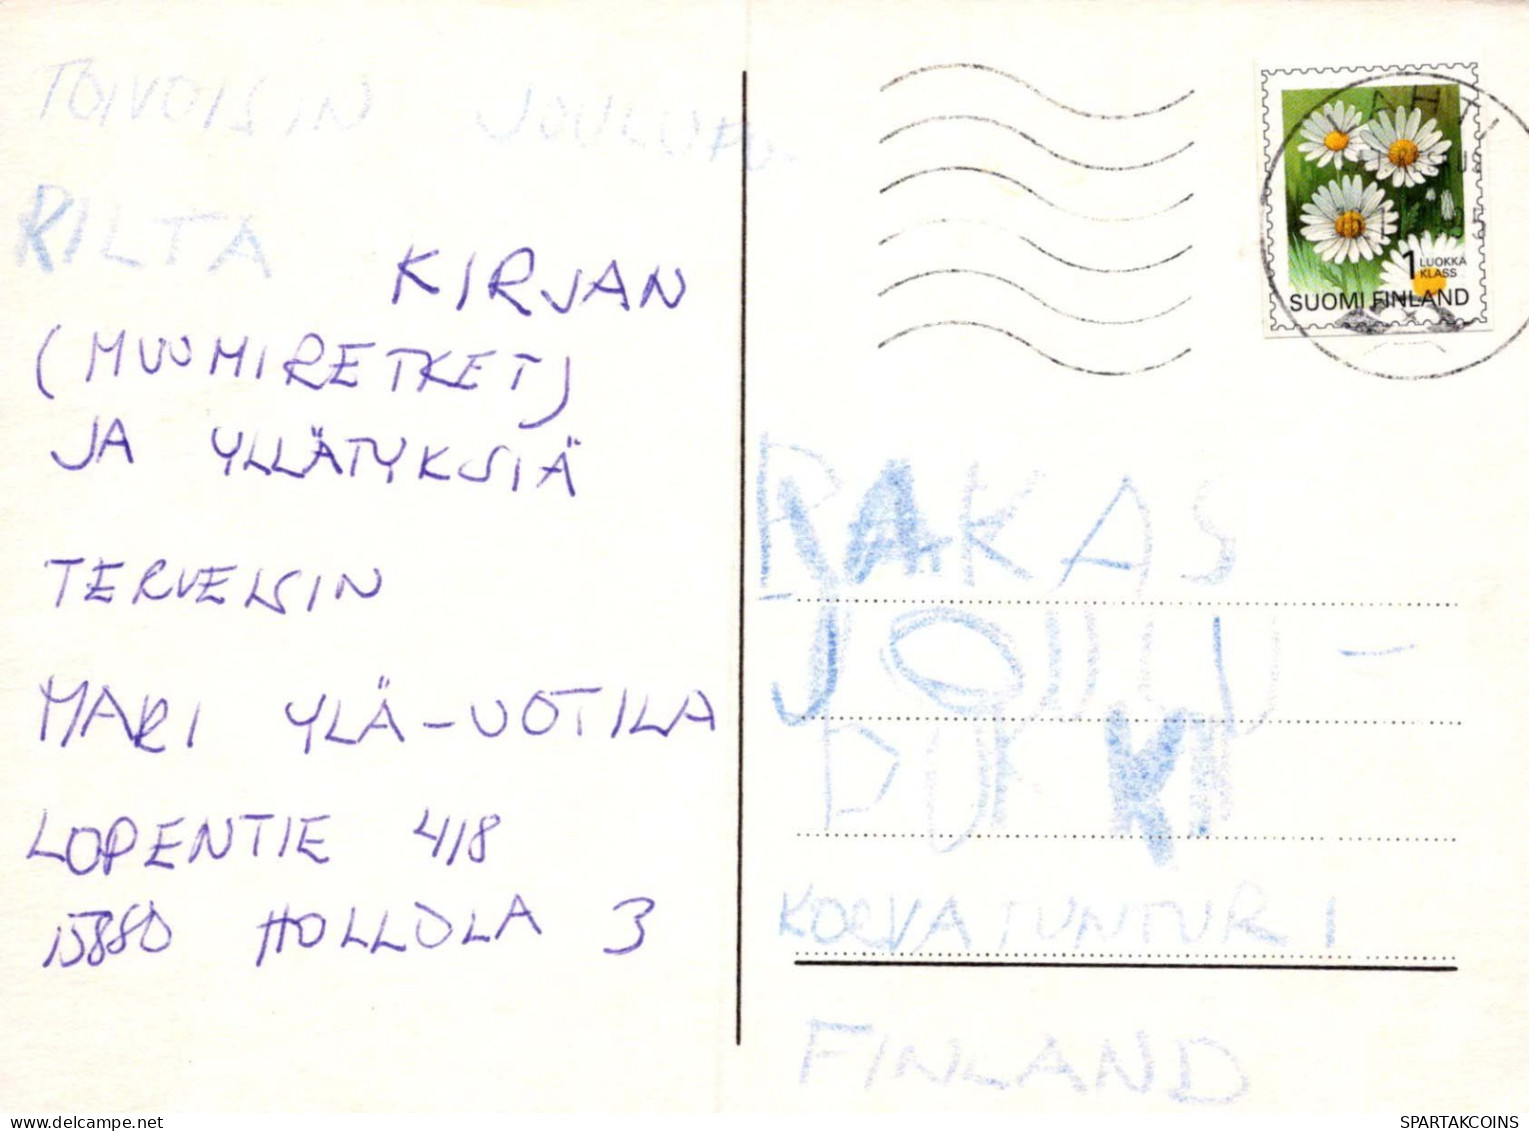 TOIVOISIN JOULUPU-
KILTA KIRJAN
(MUUMIRETKET)
JA YLLÄTYKSIÄ
TERVEISIN
MARI YLÄ-UOTILA
LOPENTIE 418
15880 HOLLOLA 3
LAHTI
1 LUOKKA
KLASS
SUOMI FINLAND
RAKAS
JOULU-
PUKKI
KORVATUNTURI
FINLAND
SPARTAKCOINS.COM